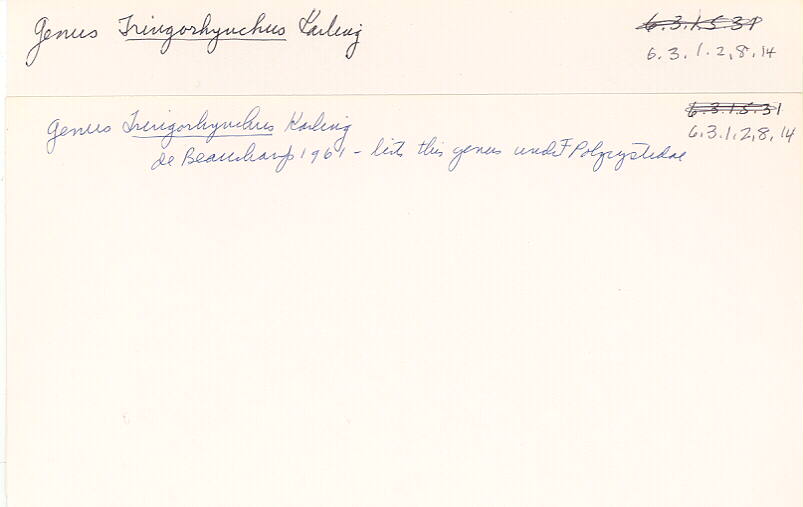 Genus Thringorhynchus Karling
6.3.1.5.31
6.3.1.2,8,14
Genus Thringorhynchus Karling
6.3.1.5.31
6.3.1.2,8,14
de Beauchamp 1961 - lists this genus und F Polycystidae